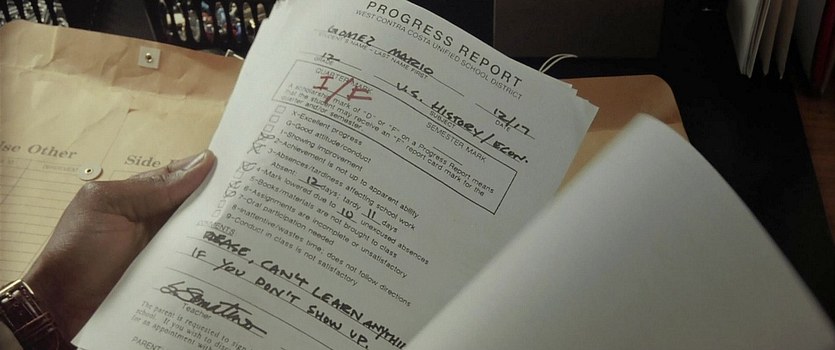 PROGRESS REPORT
WEST CONTRA COSTA UNIFIED SCHOOL DISTRICT
GOMEZ MARIO
STUDENT'S NAME – LAST NAME FIRST
12
12/17
GRADE
U.S. HISTORY/ECON.
SUBJECT
DATE
QUARTER MARK
SEMESTER MARK
I/F
A scholarship mark of "D" or "F" on a Progress Report means
that the student may receive an "F" report card mark for the
quarter and/or semester
X-Excellent progress
G-Good attitude/conduct
1-Showing improvement
2-Achievement is not up to apparent ability
3-Absences/tardiness affecting school work
Absent: 12 days; tardy 11 days
4-Mark lowered due to 10 unexcused absences
5-Books/materials are not brought to class
6-Assignments are incomplete or unsatisfactory
7-Oral participation needed
8-Inattentive/wastes time: does not follow directions
9-Conduct in class is not satisfactory
CAN'T LEARN
IF YOU DON'T SHOW UP.
Teacher
The parent is requested to
school. If you wish to
for an appointment with
PARENT
use Other
Side